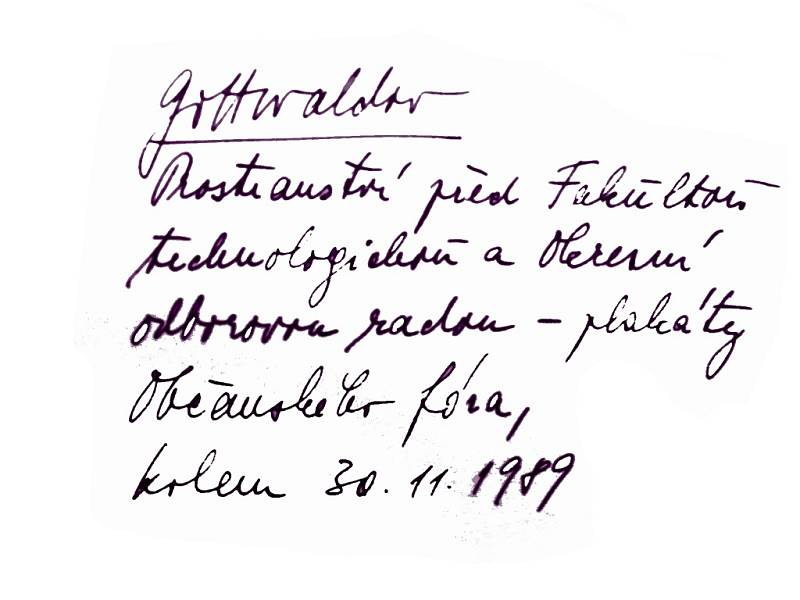 Gottwaldov
Prostranství před Fakultou
technologickou a Okresní
odborovou radou – plakáty
Občanského fóra,
kolem 30. 11. 1989